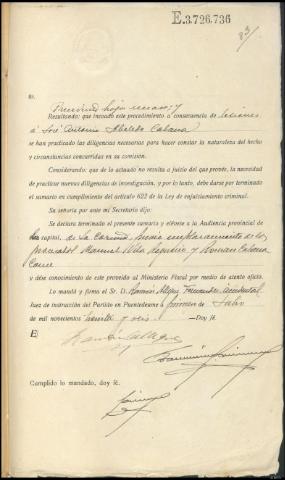 E.3.726.736
83
Resultando: que incoado este procedimiento a consecuencia de lesiones
a José Antonio
se han practicado las diligencias necesarias para hacer constar la naturaleza del hecho
y circunstancias concurrentes en su comisión.
Considerando: que de lo actuado no resulta a juicio del que provée, la necesidad
de practicar nuevas diligencias de investigación, y por lo tanto, debe darse por terminado
el sumario en cumplimiento del artículo 622 de la Ley de enjuiciamiento criminal.
Su señoría por ante mí Secretario dijo:
Se declara terminado el presente sumario y elévese a la Audiencia provincial de
de La Coruña, previo emplazamiento de los
procesados Manuel y
y debe conocimiento de este proveído al Ministerio Fiscal por medio de atento oficio.
Lo mandó y firma el Sr. D. Ramón accidental
Juez de instrucción del Partido en Puentedeume a primero de Julio
de mil novecientos treinta y seis.—Doy fé.
E/
Cumplido lo mandado, doy fé.